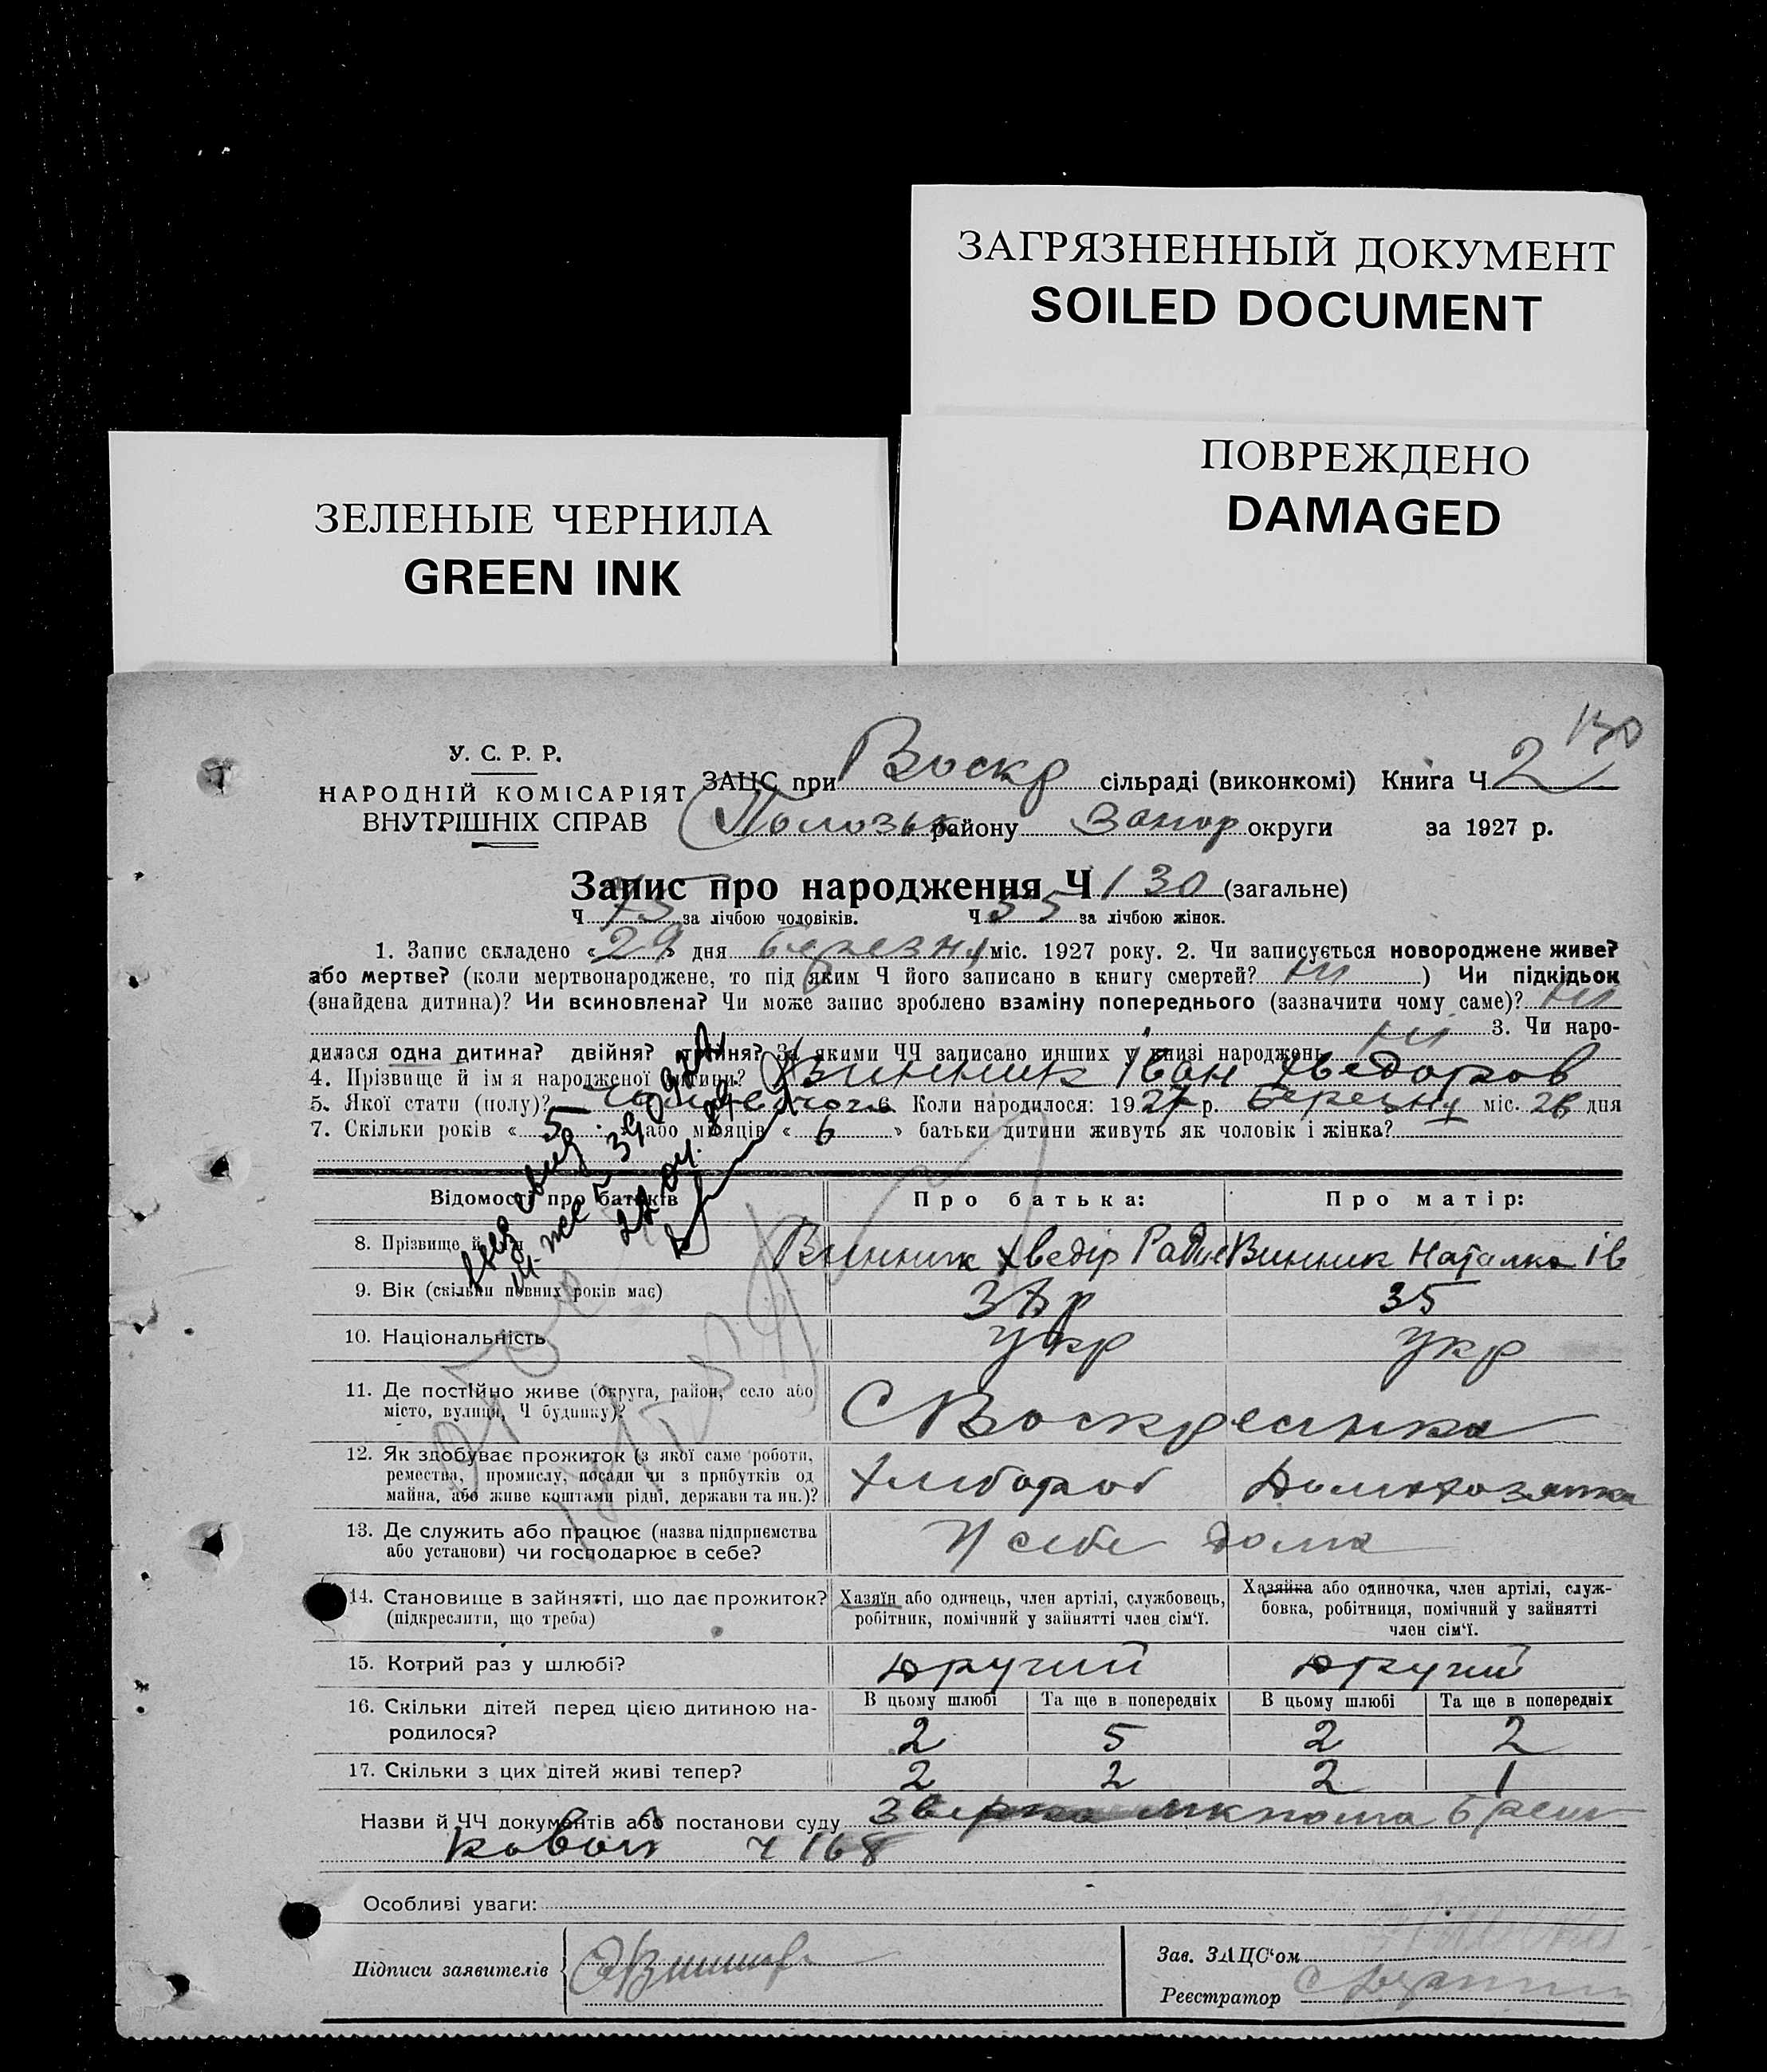 ЗАГРЯЗНЕННЫЙ ДОКУМЕНТ
SOILED DOCUMENT
ПОВРЕЖДЕНО
DAMAGED
ЗЕЛЕНЫЕ ЧЕРНИЛА
GREEN INK
130
У. С. Р. Р.
НАРОДНІЙ КОМІСАРІЯТ
ВНУТРІШНІХ СПРАВ
ЗАЦС при Воскр сільраді (виконкомі) Книга Ч 2
району Запор округи за 1927 р.
Запис про народження Ч 130 (загальне)
Ч 75 за лічбою чоловіків. Ч 55 за лічбою жінок.
1. Запис складено «29» дня березня міс. 1927 року. 2. Чи записується новороджене живе?
або мертве? (коли мертвонароджене, то під яким Ч його записано в книгу смертей? ні ) Чи підкідьок
(знайдена дитина)? Чи всиновлена? Чи може запис зроблено взаміну попереднього (зазначити чому саме)? ні
ні 3. Чи наро-
дилася одна дитина? двійня? трійня? За якими ЧЧ записано инших у книзі народжень
4. Прізвище й ім я народженої дитини? Винник Іван Хведоров
5. Якої стати (полу)? Чоловічого 6. Коли народилося: 1927 р. Березня міс. 26 дня
7. Скільки років « 5 » або місяців « 6 » батьки дитини живуть як чоловік і жінка?
Відомості про батьків Про батька: Про матір:
8. Прізвище й Винник Хведір Винник Наталка Ів
9. Вік (скільки повних років має) 35
10. Національність укр укр
11. Де постійно живе (округа, район, село або
місто, вулиця, Ч будинку)? С Воскресинка
12. Як здобуває прожиток (з якої саме роботи,
ремества, промислу, посади чи з прибутків од
майна, або живе коштами рідні, держави та ин.)? Хлібороб Домохозяйка
13. Де служить або працює (назва підпрпємства
або установи) чи господарює в себе? У себе дома
14. Становище в зайнятті, що дає прожиток?
(підкреслити, що треба)
Хазяїн або одинець, член артілі, службовець,
робітник, помічний у зайнятті член сім‘ї.
Хазяйка або одиночка, член артілі, служ-
бовка, робітниця, помічний у зайнятті
член сім‘ї.
15. Котрий раз у шлюбі? другий другий
В цьому шлюбі Та ще в попередніх В цьому шлюбі Та ще в попередніх
16. Скільки дітей перед цією дитиною на-
родилося? 2 5 2 2
17. Скільки з цих дітей живі тепер? 2 2 2 1
Назви й ЧЧ документів або постанови суду
ч 168
Особливі уваги:
Підписи заявителів
Зав. ЗАЦС‘ом
Реєстратор